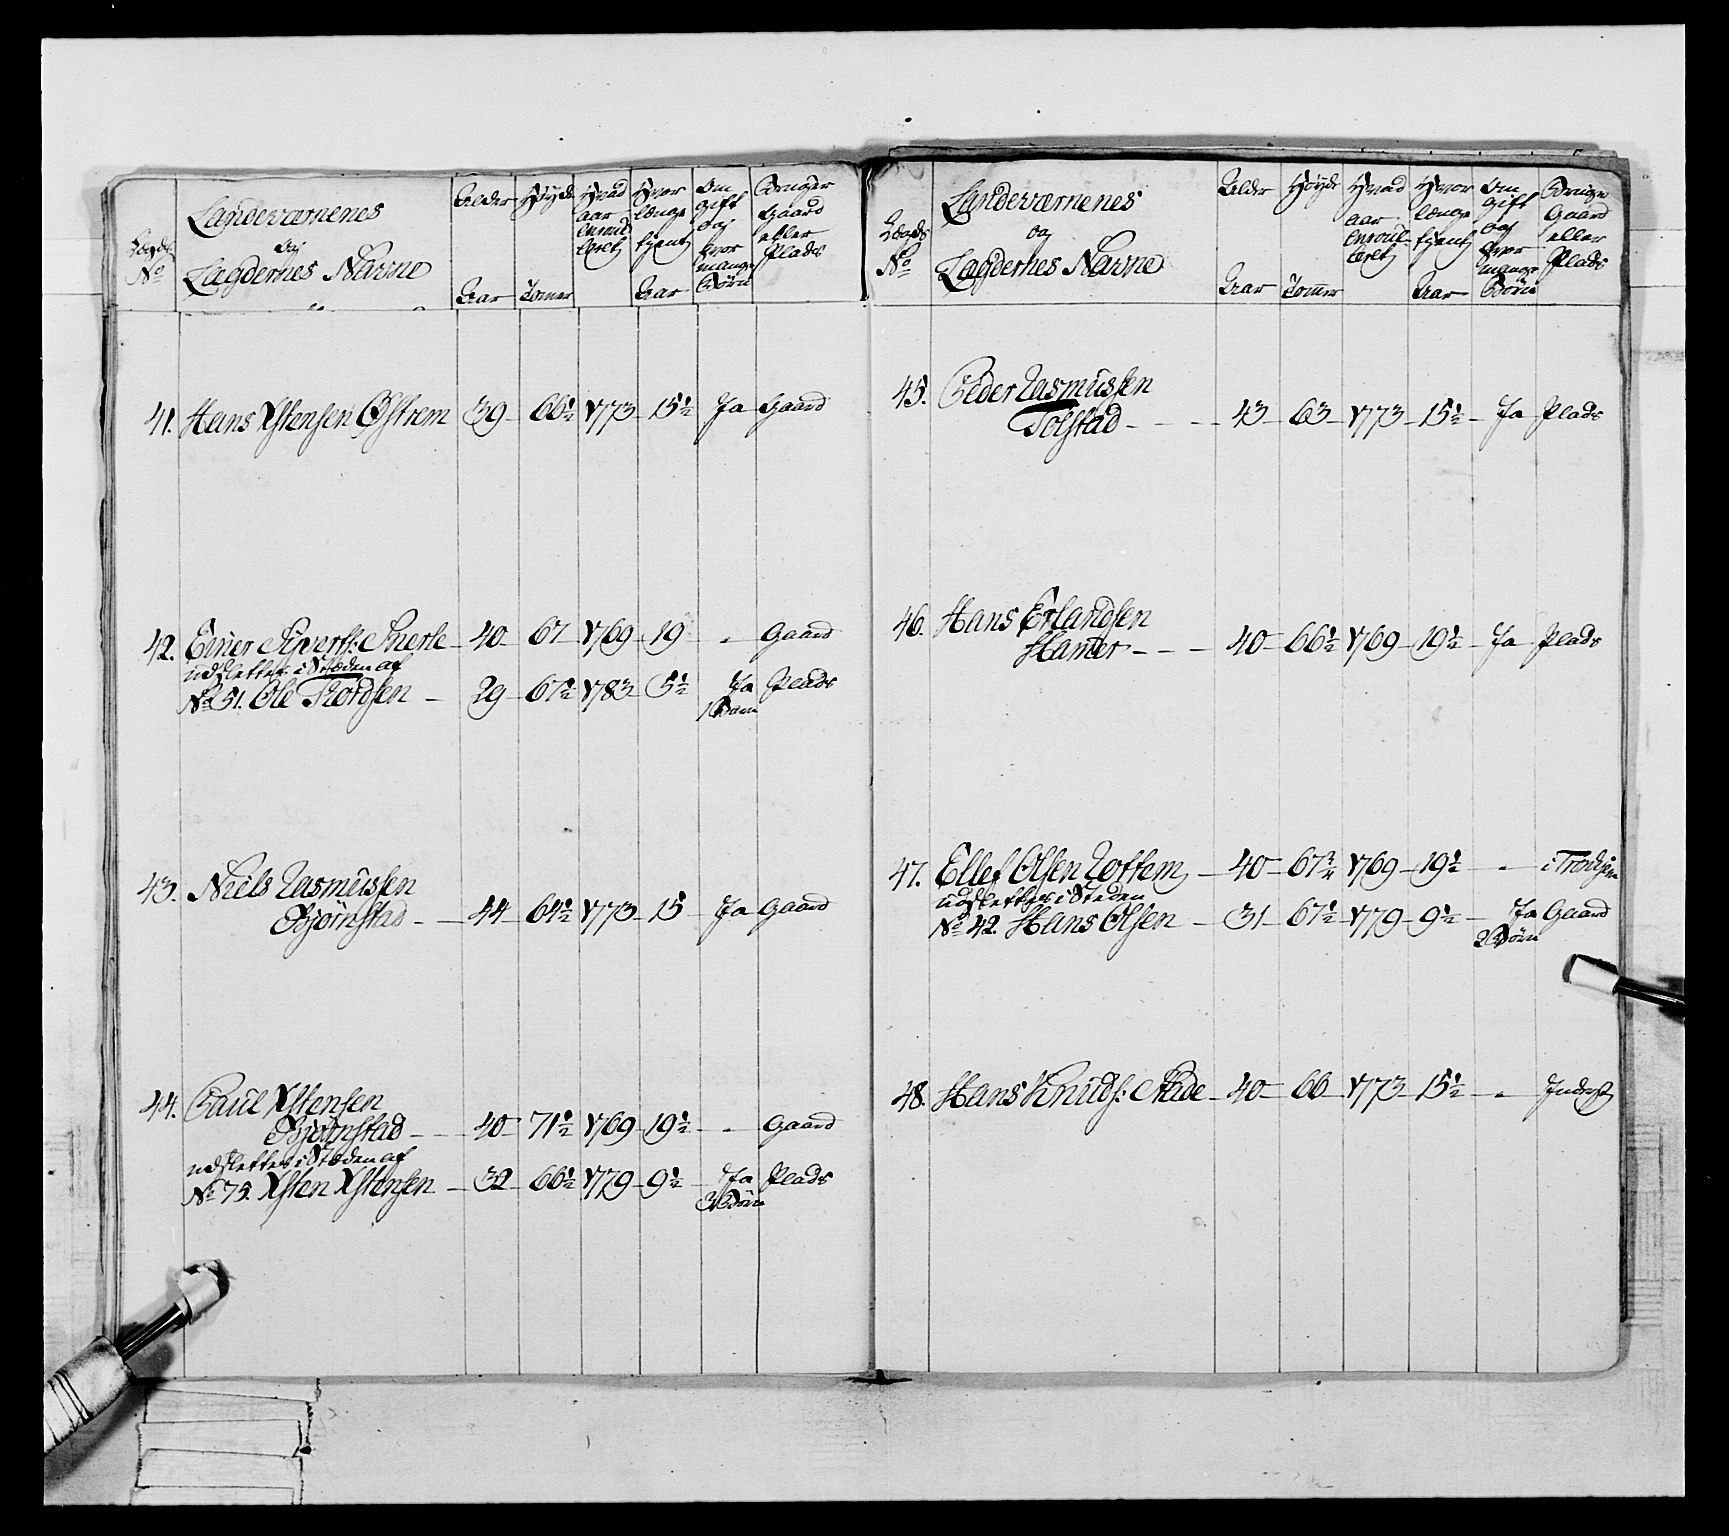 Lægds No
Landeværnenes og Lægdernes Navne
Alder Aar
Høyde Tomer
Hvad aar enroulleret
Hvor længe tjent Aar
Om gift og hvor mange Børn
Bruger Gaard eller Plads
41. Hans Ystensen Østrem 39 - 66½ 1773 - 15½ Ja Gaard
42. Einer Siverts: Snerle - 40 - 67 1769 - 19 " Gaard
udslettes i Stæden af
No 51. Ole Thordsen - 29 - 67½ 1783 5½ Ja Plads
1 Barn
43. Niels Rasmussen
Bjørnstad - 44 - 64½ 1773 - 15 - Ja Gaard
44. Paul Ystensen
Bjørnstad - 40 - 71½ 1769 - 19½ - " Gaard
udslettes i Stæden af
No 75. Ysten Ystensen - 32 - 66½ 1779 - 9½ - Ja Plads
3 Børn
Lægds No
Landeværnenes og Lægdernes Navne
Alder Aar
Høyde Tommer
Hvad aar enroulleret
Hvor længe tjent Aar
Om gift og hvor mange Børn
Bruger Gaard eller Plads
45. Peder Rasmussen
Tolstad - - - 43 - 63 - 1773 - 15½ - Ja Plads
46. Hans Erlandsen
Hamer - - - 40 - 66½ - 1769 - 19½ - Ja Plads
47. Ellef Olsen Lottem - 40 - 67¾ - 1769 - 19½ " - i Trondhjem
udslettes i Steden
No 42. Hans Olsen - 31 - 67½ - 1779 - 9½ - Ja Gaard
2 Børn
48. Hans Knuds: Stade - 40 - 66 - 1773 - 15½ - " - Inderst